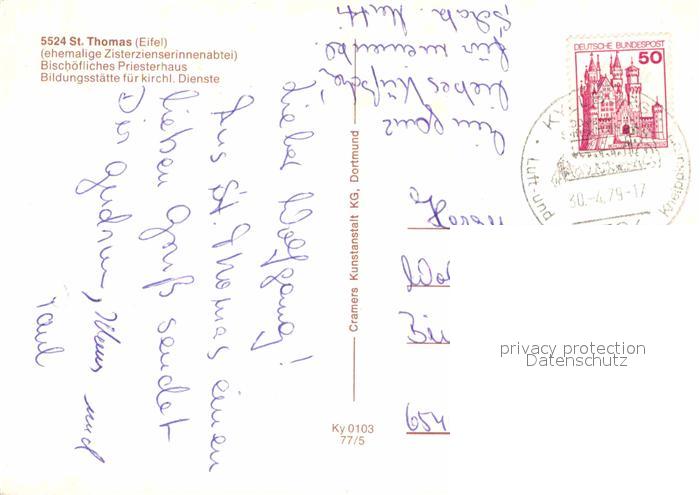 5524 St. Thomas (Eifel)
(ehemalige Zisterzienserinnenabtei)
Bischöfliches Priesterhaus
Bildungsstätte für kirchl. Dienste
Lieber Wolfgang!
Aus St. Thomas einen
lieben Gruß sendet
Dir Gudrun, Klaus und
Paul
Ein ganz
liebes Küßchen
für meinen
Schatz. Mutti
Cramers Kunstanstalt KG, Dortmund
Ky 0103
77/5
DEUTSCHE BUNDESPOST
50
KY
Luft- und
Kneippkur
30.-4.79-17
Herrn
Wo
654
privacy protection
Datenschutz